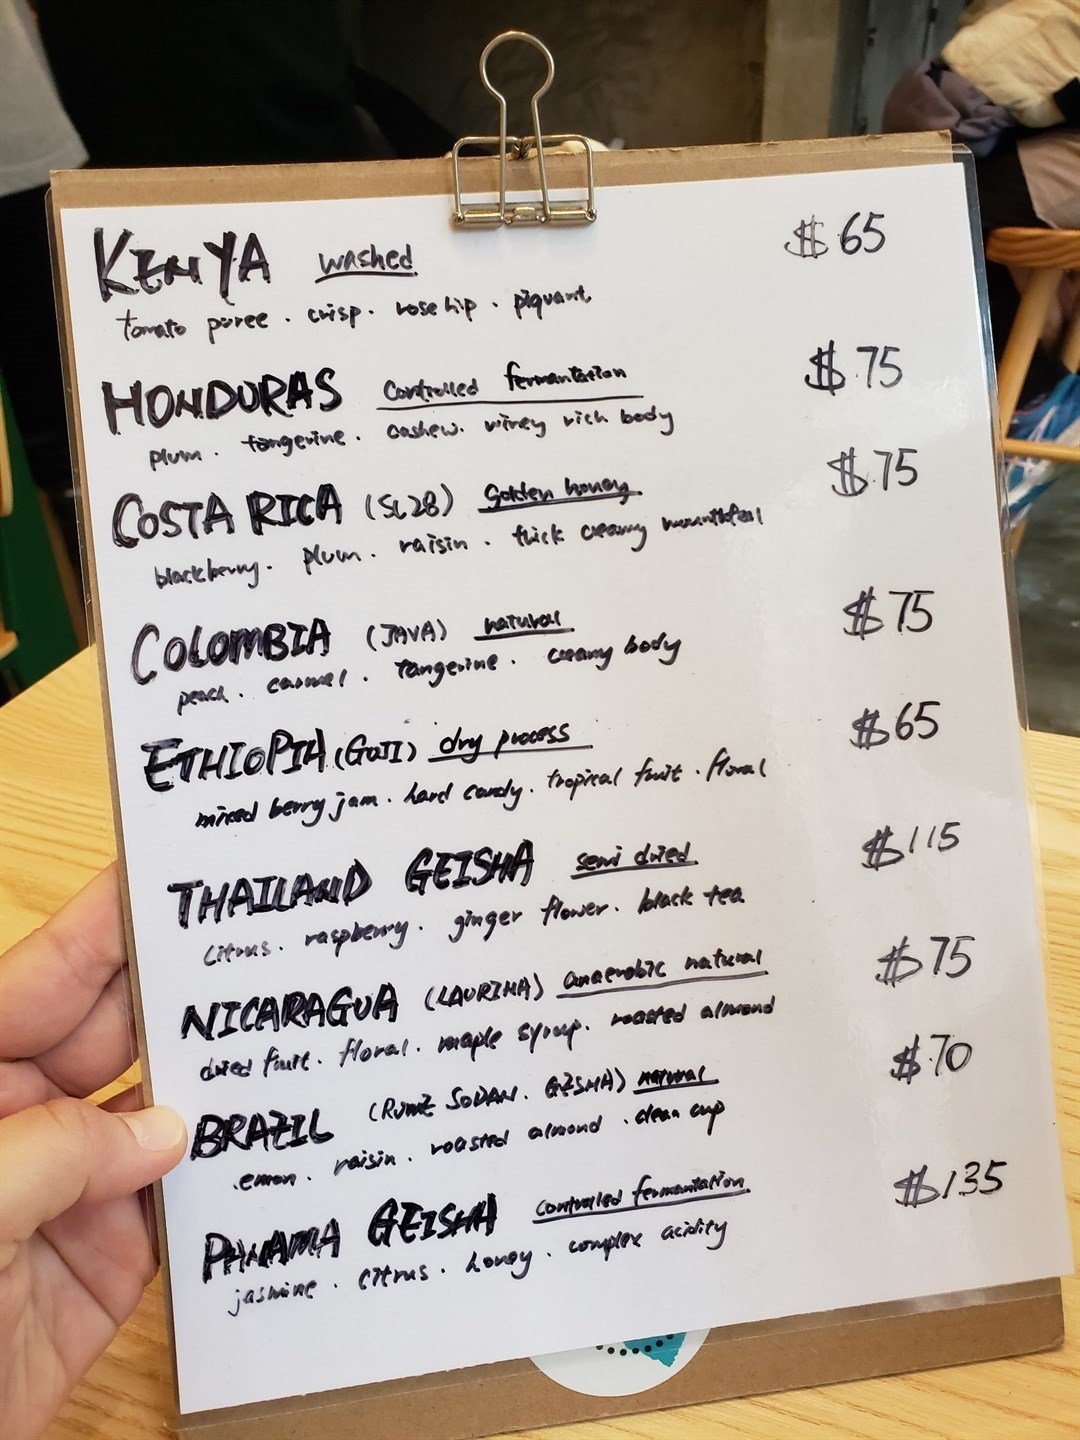 KENYA washed $65
tomato puree . crisp . rosehip . piquant
HONDURAS controlled fermantation $75
plum . tangerine . cashew . winey rich body
COSTA RICA (SL28) golden honey $75
blackberry . plum . raisin . thick creamy mounthfeel
COLOMBIA (JAVA) natural $75
peach . caramel . tangerine . creamy body
ETHIOPIA (GUJI) dry process $65
mixed berry jam . hard candy . tropical fruit . floral
THAILAND GEISHA semi dried $115
citrus . raspberry . ginger flower . black tea
NICARAGUA (LAURINA) anaerobic natural $75
dried fruit . floral . maple syrup . roasted almond
BRAZIL (RUME SUDAN . GEISHA) natural $70
lemon . raisin . roasted almond . clean cup
PANAMA GEISHA controlled fermantation $135
jasmine . citrus . honey . complex acidity